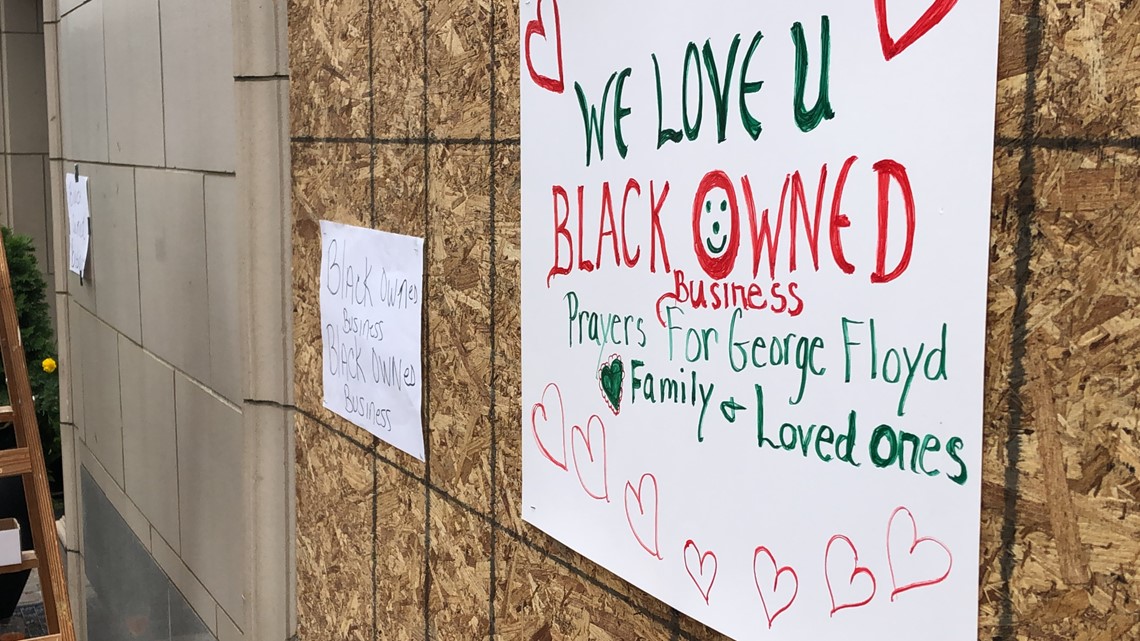 WE LOVE U
BLACK OWNED
Business
Prayers For George Floyd
Family & Loved ones
BLACK OWNED
Business
BLACK OWNED
Business